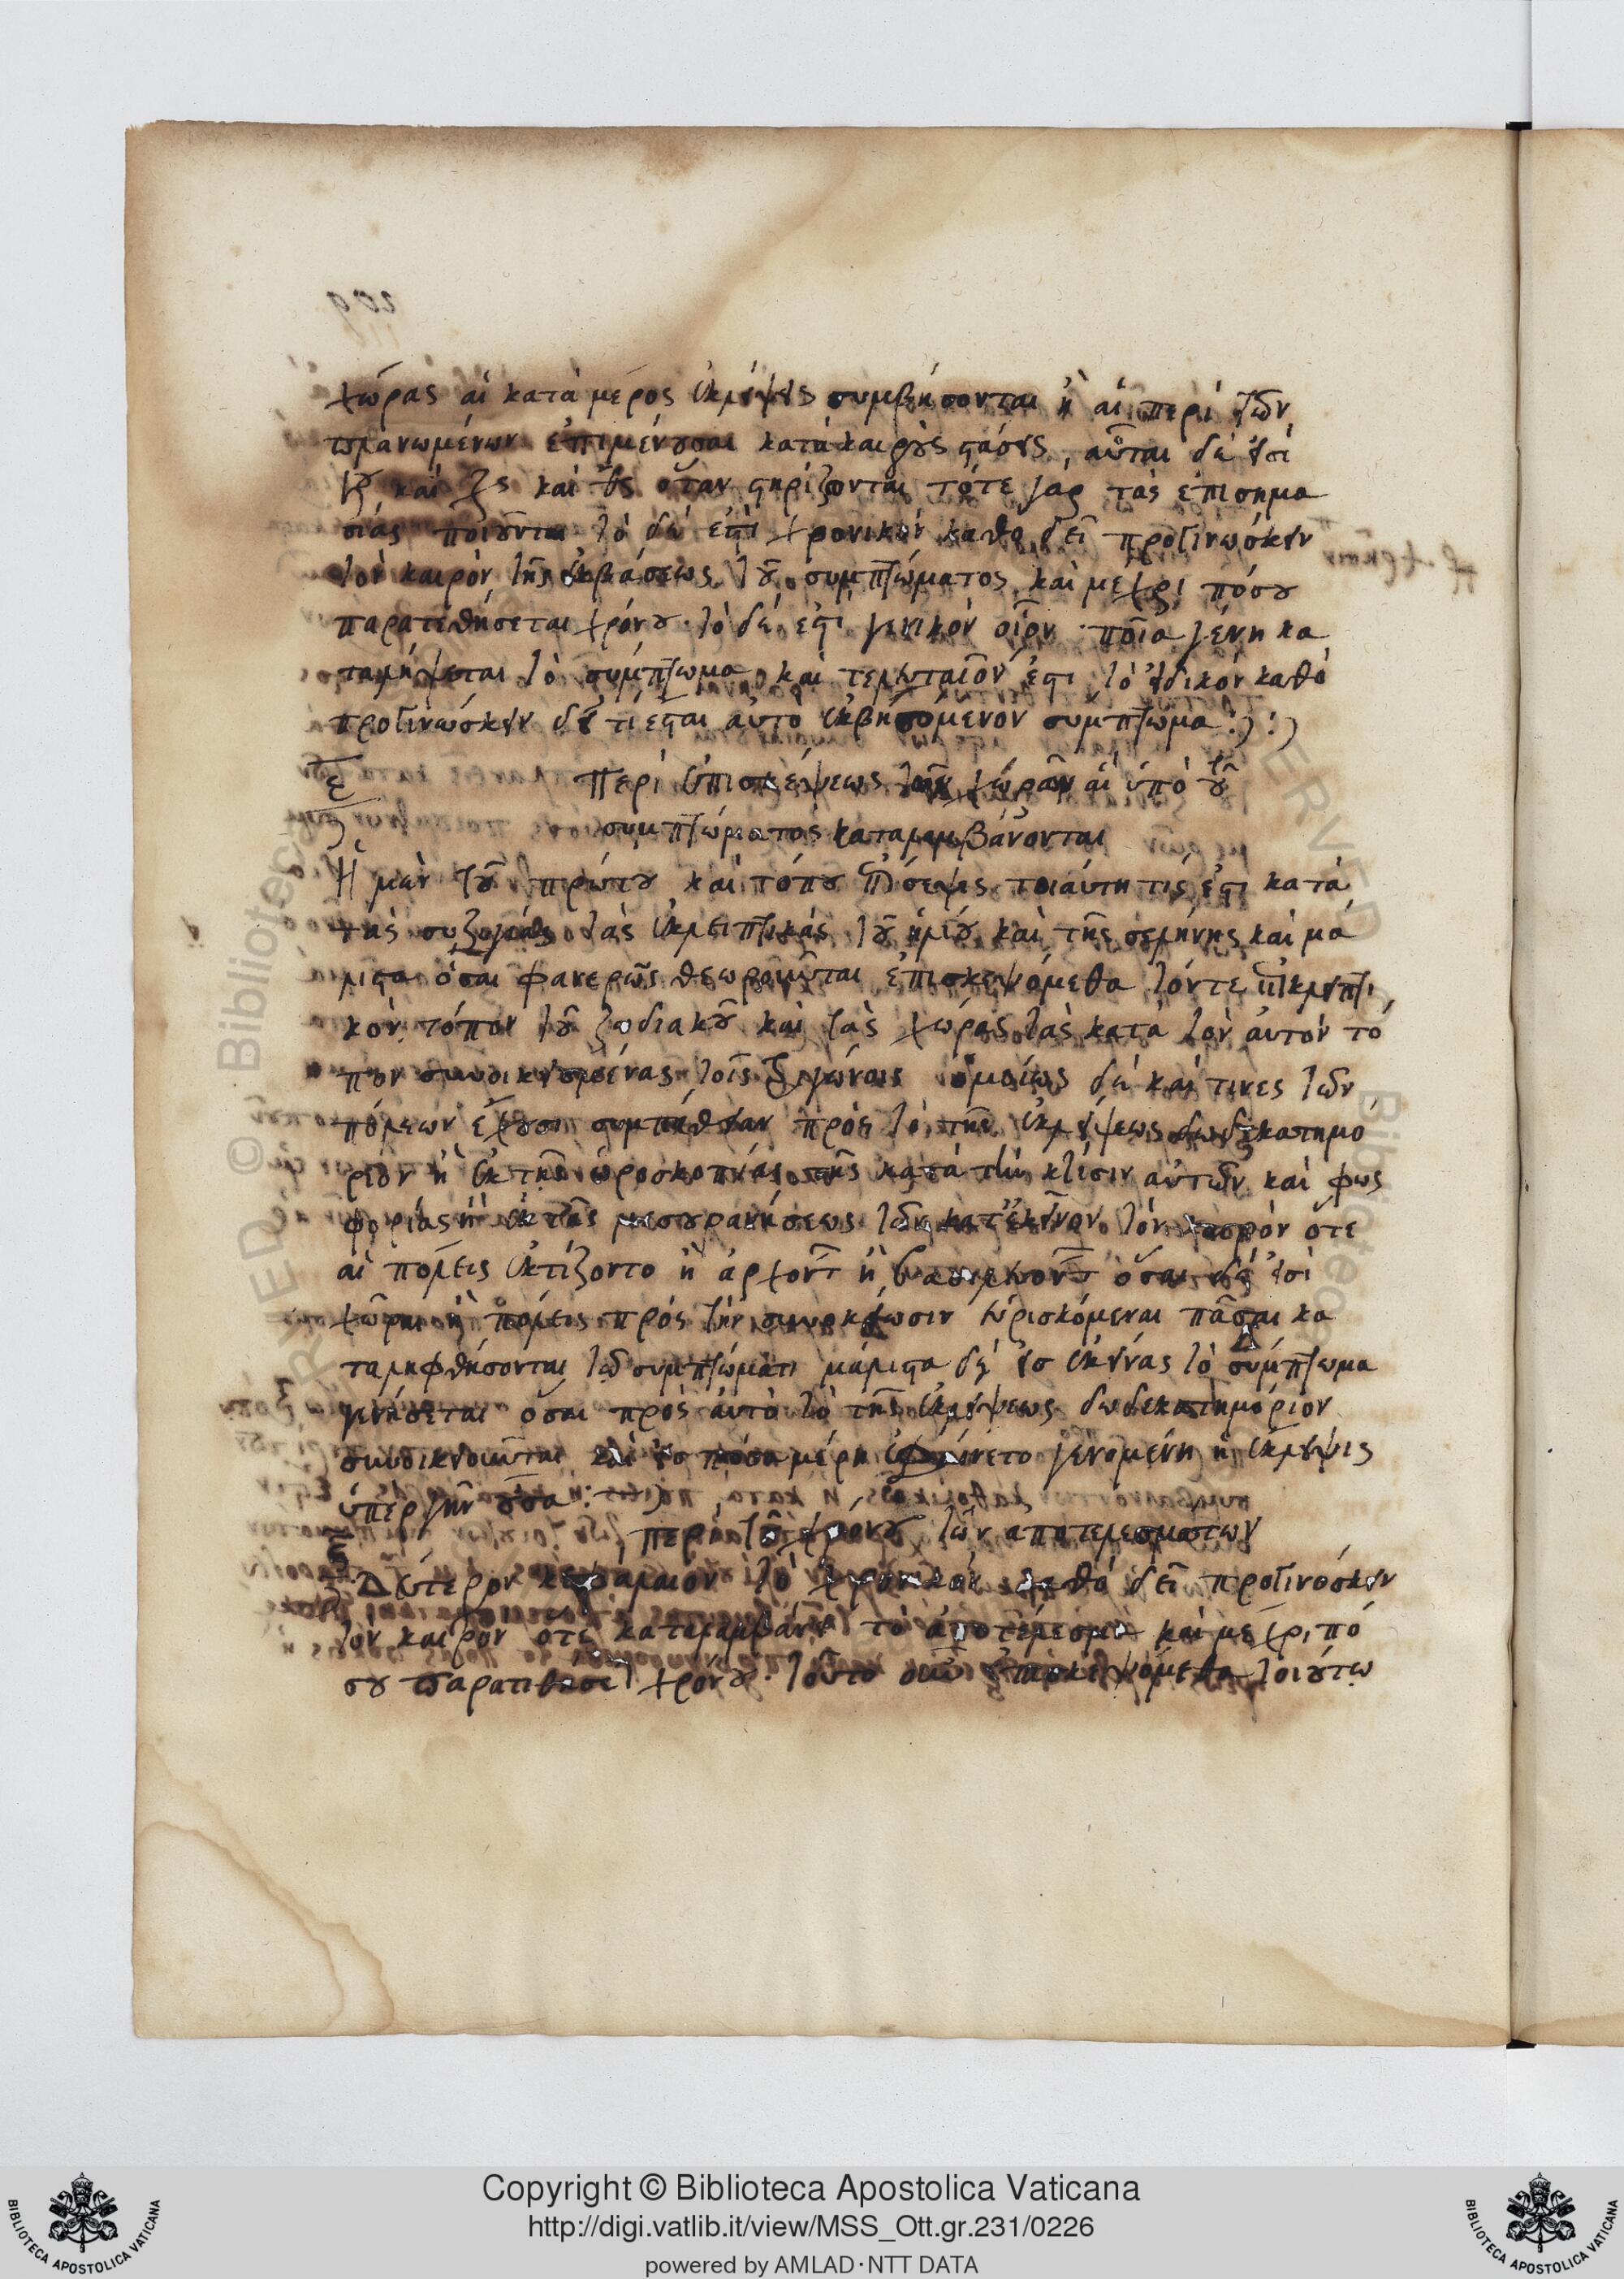 χώρας αἱ κατὰ μέρος ἐκλείψεις συμβήσονται ἢ αἱ περὶ τῶν
πλανωμένων ἐπιμένουσαι κατὰ καιροὺς στάσεις, αὗται δέ εἰσι
καὶ καὶ ὅταν στηρίζονται τότε γὰρ τὰς ἐπισημα
σίας ποιοῦνται τὸ δέ ἐστι χρονικὸν καθὸ δεῖ προγινώσκειν
τὸν καιρὸν τῆς ἐκβάσεως τοῦ συμπτώματος καὶ μέχρι πόσου
παρατεθήσεται χρόνου· τὸ δέ ἐστι γενικὸν οἷον ποῖα γένη κα
ταλήψεται τὸ σύμπτωμα καὶ τελευταῖόν ἐστι τὸ εἰδικὸν καθὸ
προγινώσκειν δεῖ τί ἔσται αὐτὸ ἐκβησόμενον σύμπτωμα :) :)
Περὶ ἐπισκέψεως τῶν χωρῶν αἱ ὑπὸ τοῦ
συμπτώματος καταλαμβάνονται
Ἡ μὲν τοῦ πρώτου καὶ τόπου τοιαύτη τίς ἐστι κατὰ
τὰς συζυγίας τὰς ἐκλειπτικὰς τοῦ ἡλίου καὶ τῆς σελήνης καὶ μά
λιστα ὅσαι φανερῶς θεωροῦνται ἐπισκεψόμεθα τόντε ἐκλειπτι
κὸν τόπον τοῦ ζωδιακοῦ καὶ τὰς χώρας τὰς κατὰ τὸν αὐτὸν τό
πον συνοικειουμένας τοῖς τριγώνοις ὁμοίως δὲ καὶ τινες τῶν
πόλεων ἔχουσι συμπάθειαν πρὸς τὸ τῆς ἐκλείψεως δωδεκατημό
ριον ἢ ἐκ τῆς ὡροσκοπείας τῆς κατὰ τὴν κτίσιν αὐτῶν καὶ φωσ
φορίας ἢ ἐκ τῆς μεσουρανήσεως τῶν κατ' ἐκεῖνον τὸν καιρὸν ὅτε
αἱ πόλεις ἐκτίζοντο ἢ ἀρχόντ ἢ βασιλευοντ ὅσαι δέ εἰσι
χῶραι ἢ πόλεις πρὸς τὴν συνοικείωσιν εὑρισκόμεναι πᾶσαι κα
ταληφθήσονται τῷ συμπτώματι μάλιστα δὲ εἰσ ἐκείνας τὸ σύμπτωμα
γενήσεται ὅσαι πρὸς αὐτὸ τὸ τῆς ἐκλείψεως δωδεκατημόριον
συνοικειοῦνται καὶ εἰσ πόσα μέρη ἐφαίνετο γενομένη ἡ ἔκλειψις
ὑπὲρ γῆν οὖσα :
περὶ τοῦ χρόνου τῶν ἀποτελεσμάτων
Δεύτερον κεφάλαιον τὸ χρονικὸν καθὸ δεῖ προγινόσκειν
τὸν καιρὸν ὅτε καταλαμβάνει τὸ ἀποτέλεσμα καὶ μέχρι πό
σου παρατιθησετ χρονου· τοῦτο οὖν ἐπισκεψόμεθα τοιούτω